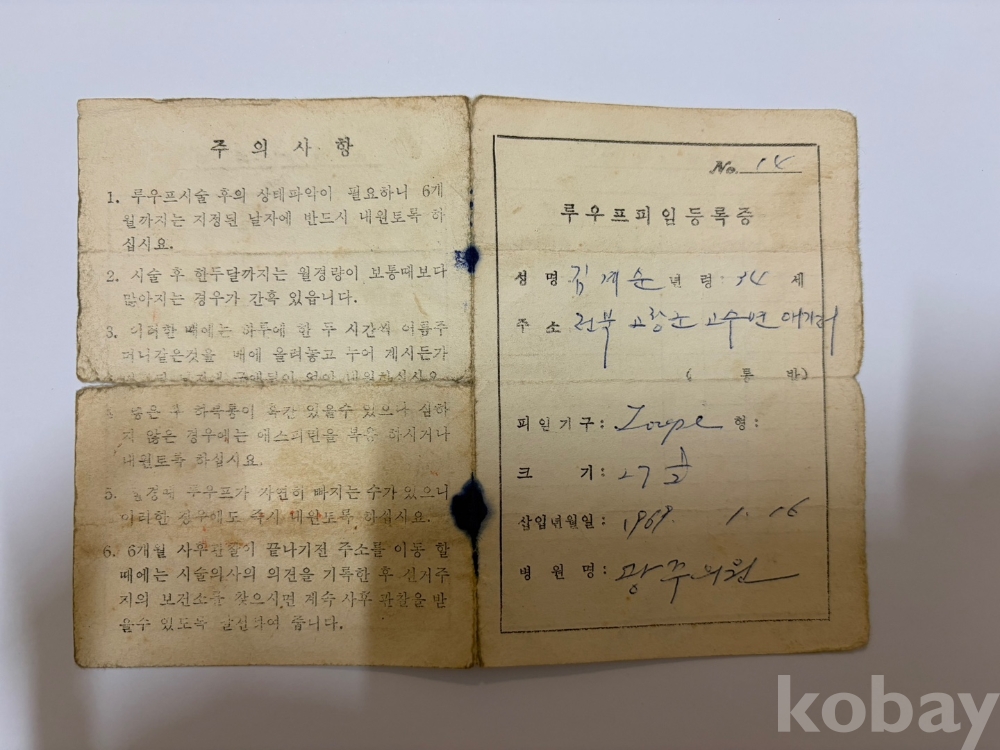 주 의 사 항
1. 루우프시술 후의 상태파악이 필요하니 6개
월까지는 지정된 날자에 반드시 내원토록 하
십시요.
2. 시술 후 한두달까지는 월경량이 보통때보다
많아지는 경우가 간혹 있읍니다.
3. 이러한 때에는 하루에 한 두 시간씩 어름주
머니같은것을 배에 올려놓고 누어 계시든가
내원하십시요
하복통이 약간 있을수 있으나 심하
지 않은 경우에는 애스피린을 복용 하시거나
내원토록 하십시요.
5. 월경때 루우프가 자연히 빠지는 수가 있으니
이러한 경우에도 즉시 내원토록 하십시요.
6. 6개월 사후관찰이 끝나기전 주소를 이동 할
때에는 시술의사의 의견을 기록한 후 신거주
지의 보건소를 찾으시면 계속 사후 관찰을 받
을수 있도록 알선하여 줍니다.
No. 14
루우프피임등록증
성 명 김계순 년 령 34 세
주 소 전북 고창군 고수면
( 통 반)
피임기구: Loupe 형:
크 기: 27
삽입년월일: 1969. 1. 16
병 원 명: 광주의원
kobay